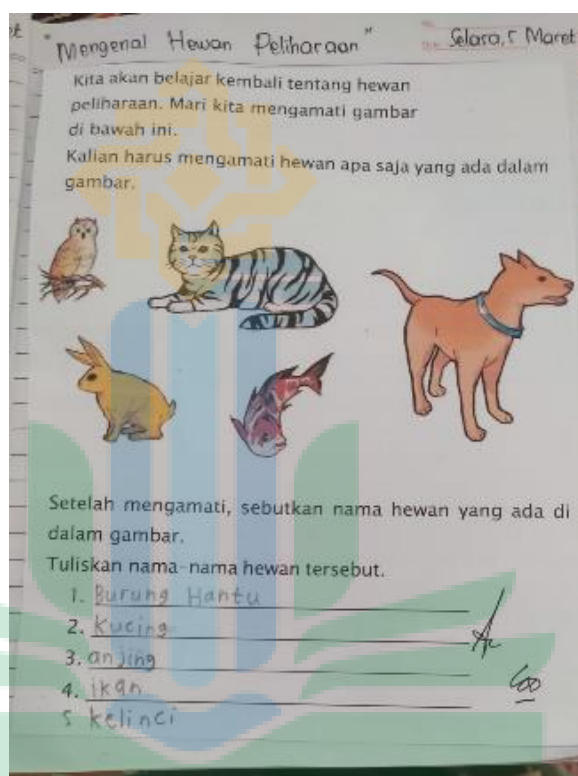 "Mengenal Hewan Peliharaan"
Selasa, 5 Maret
Kita akan belajar kembali tentang hewan
peliharaan. Mari kita mengamati gambar
di bawah ini.
Kalian harus mengamati hewan apa saja yang ada dalam
gambar.
Setelah mengamati, sebutkan nama hewan yang ada di
dalam gambar.
Tuliskan nama-nama hewan tersebut.
1. Burung Hantu
2. Kucing
3. anjing
4. ikan
5 kelinci